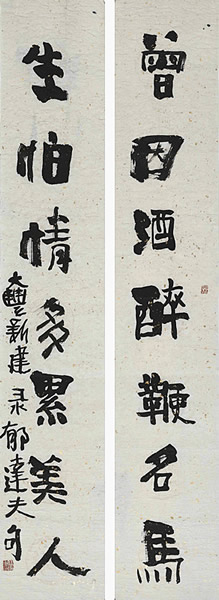 曾因酒醉鞭名馬
生怕情多累美人
大豐新建录郁達夫句